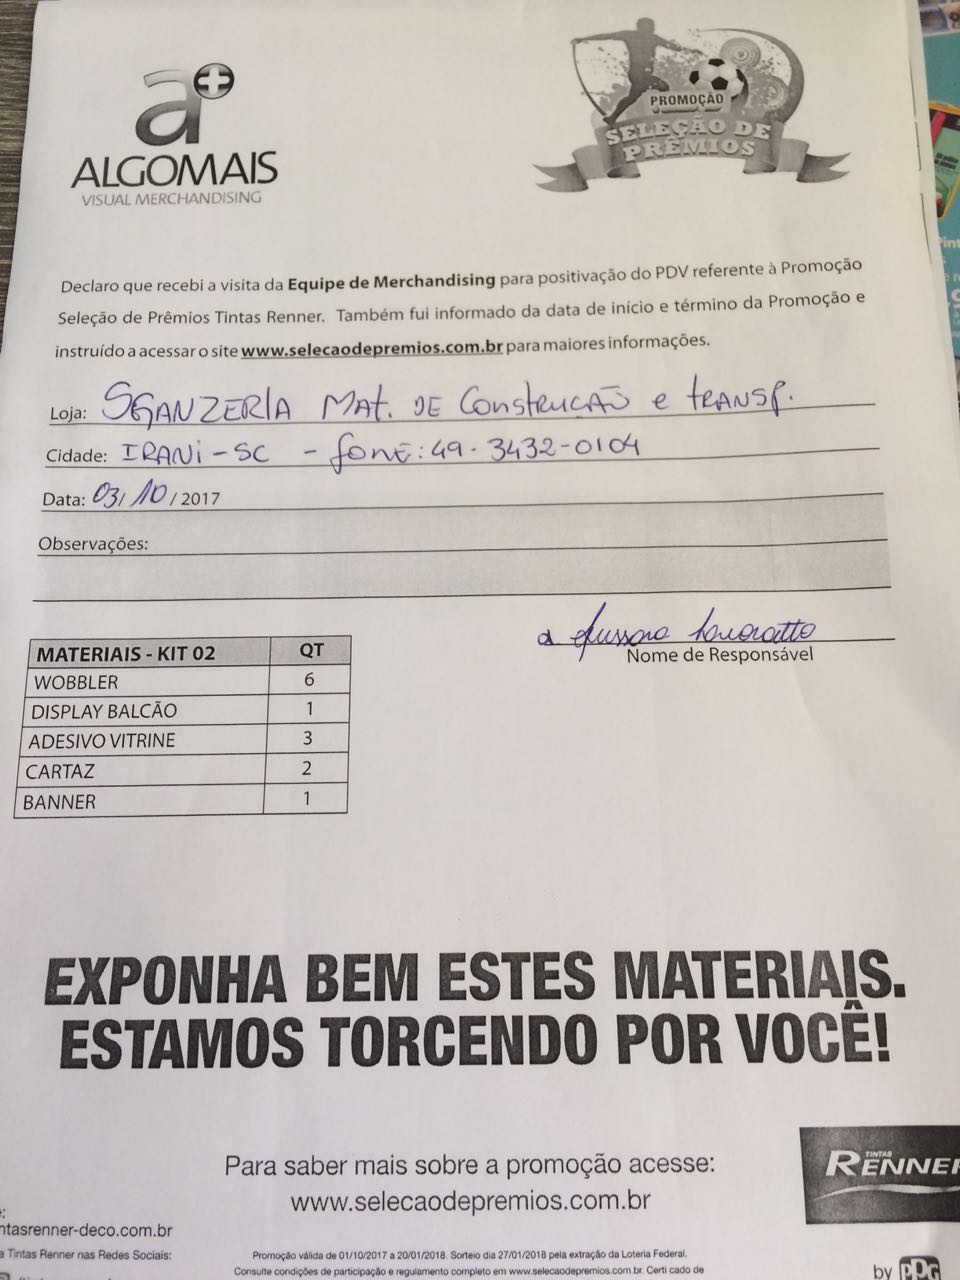 a+
ALGOMAIS
VISUAL MERCHANDISING
PROMOÇÃO
SELEÇÃO DE
PRÊMIOS
Declaro que recebi a visita da Equipe de Merchandising para positivação do PDV referente à Promoção
Seleção de Prêmios Tintas Renner. Também fui informado da data de início e término da Promoção e
instruído a acessar o site www.selecaodepremios.com.br para maiores informações.
Loja: SGANZERLA MAT. DE CONSTRUCÃO e TRANSP.
Cidade: IRANI-SC - FONE: 49-3432-0104
Data: 03/10/2017
Observações:
Nome de Responsável
MATERIAIS - KIT 02 QT
WOBBLER 6
DISPLAY BALCÃO 1
ADESIVO VITRINE 3
CARTAZ 2
BANNER 1
EXPONHA BEM ESTES MATERIAIS.
ESTAMOS TORCENDO POR VOCÊ!
Para saber mais sobre a promoção acesse:
www.selecaodepremios.com.br
TINTAS
RENNER
ntasrenner-deco.com.br
a Tintas Renner nas Redes Sociais:
Promoção válida de 01/10/2017 a 20/01/2018. Sorteio dia 27/01/2018 pela extração da Loteria Federal.
Consulte condições de participação e regulamento completo em www.selecaodepremios.com.br. Certi cado de
by PPG